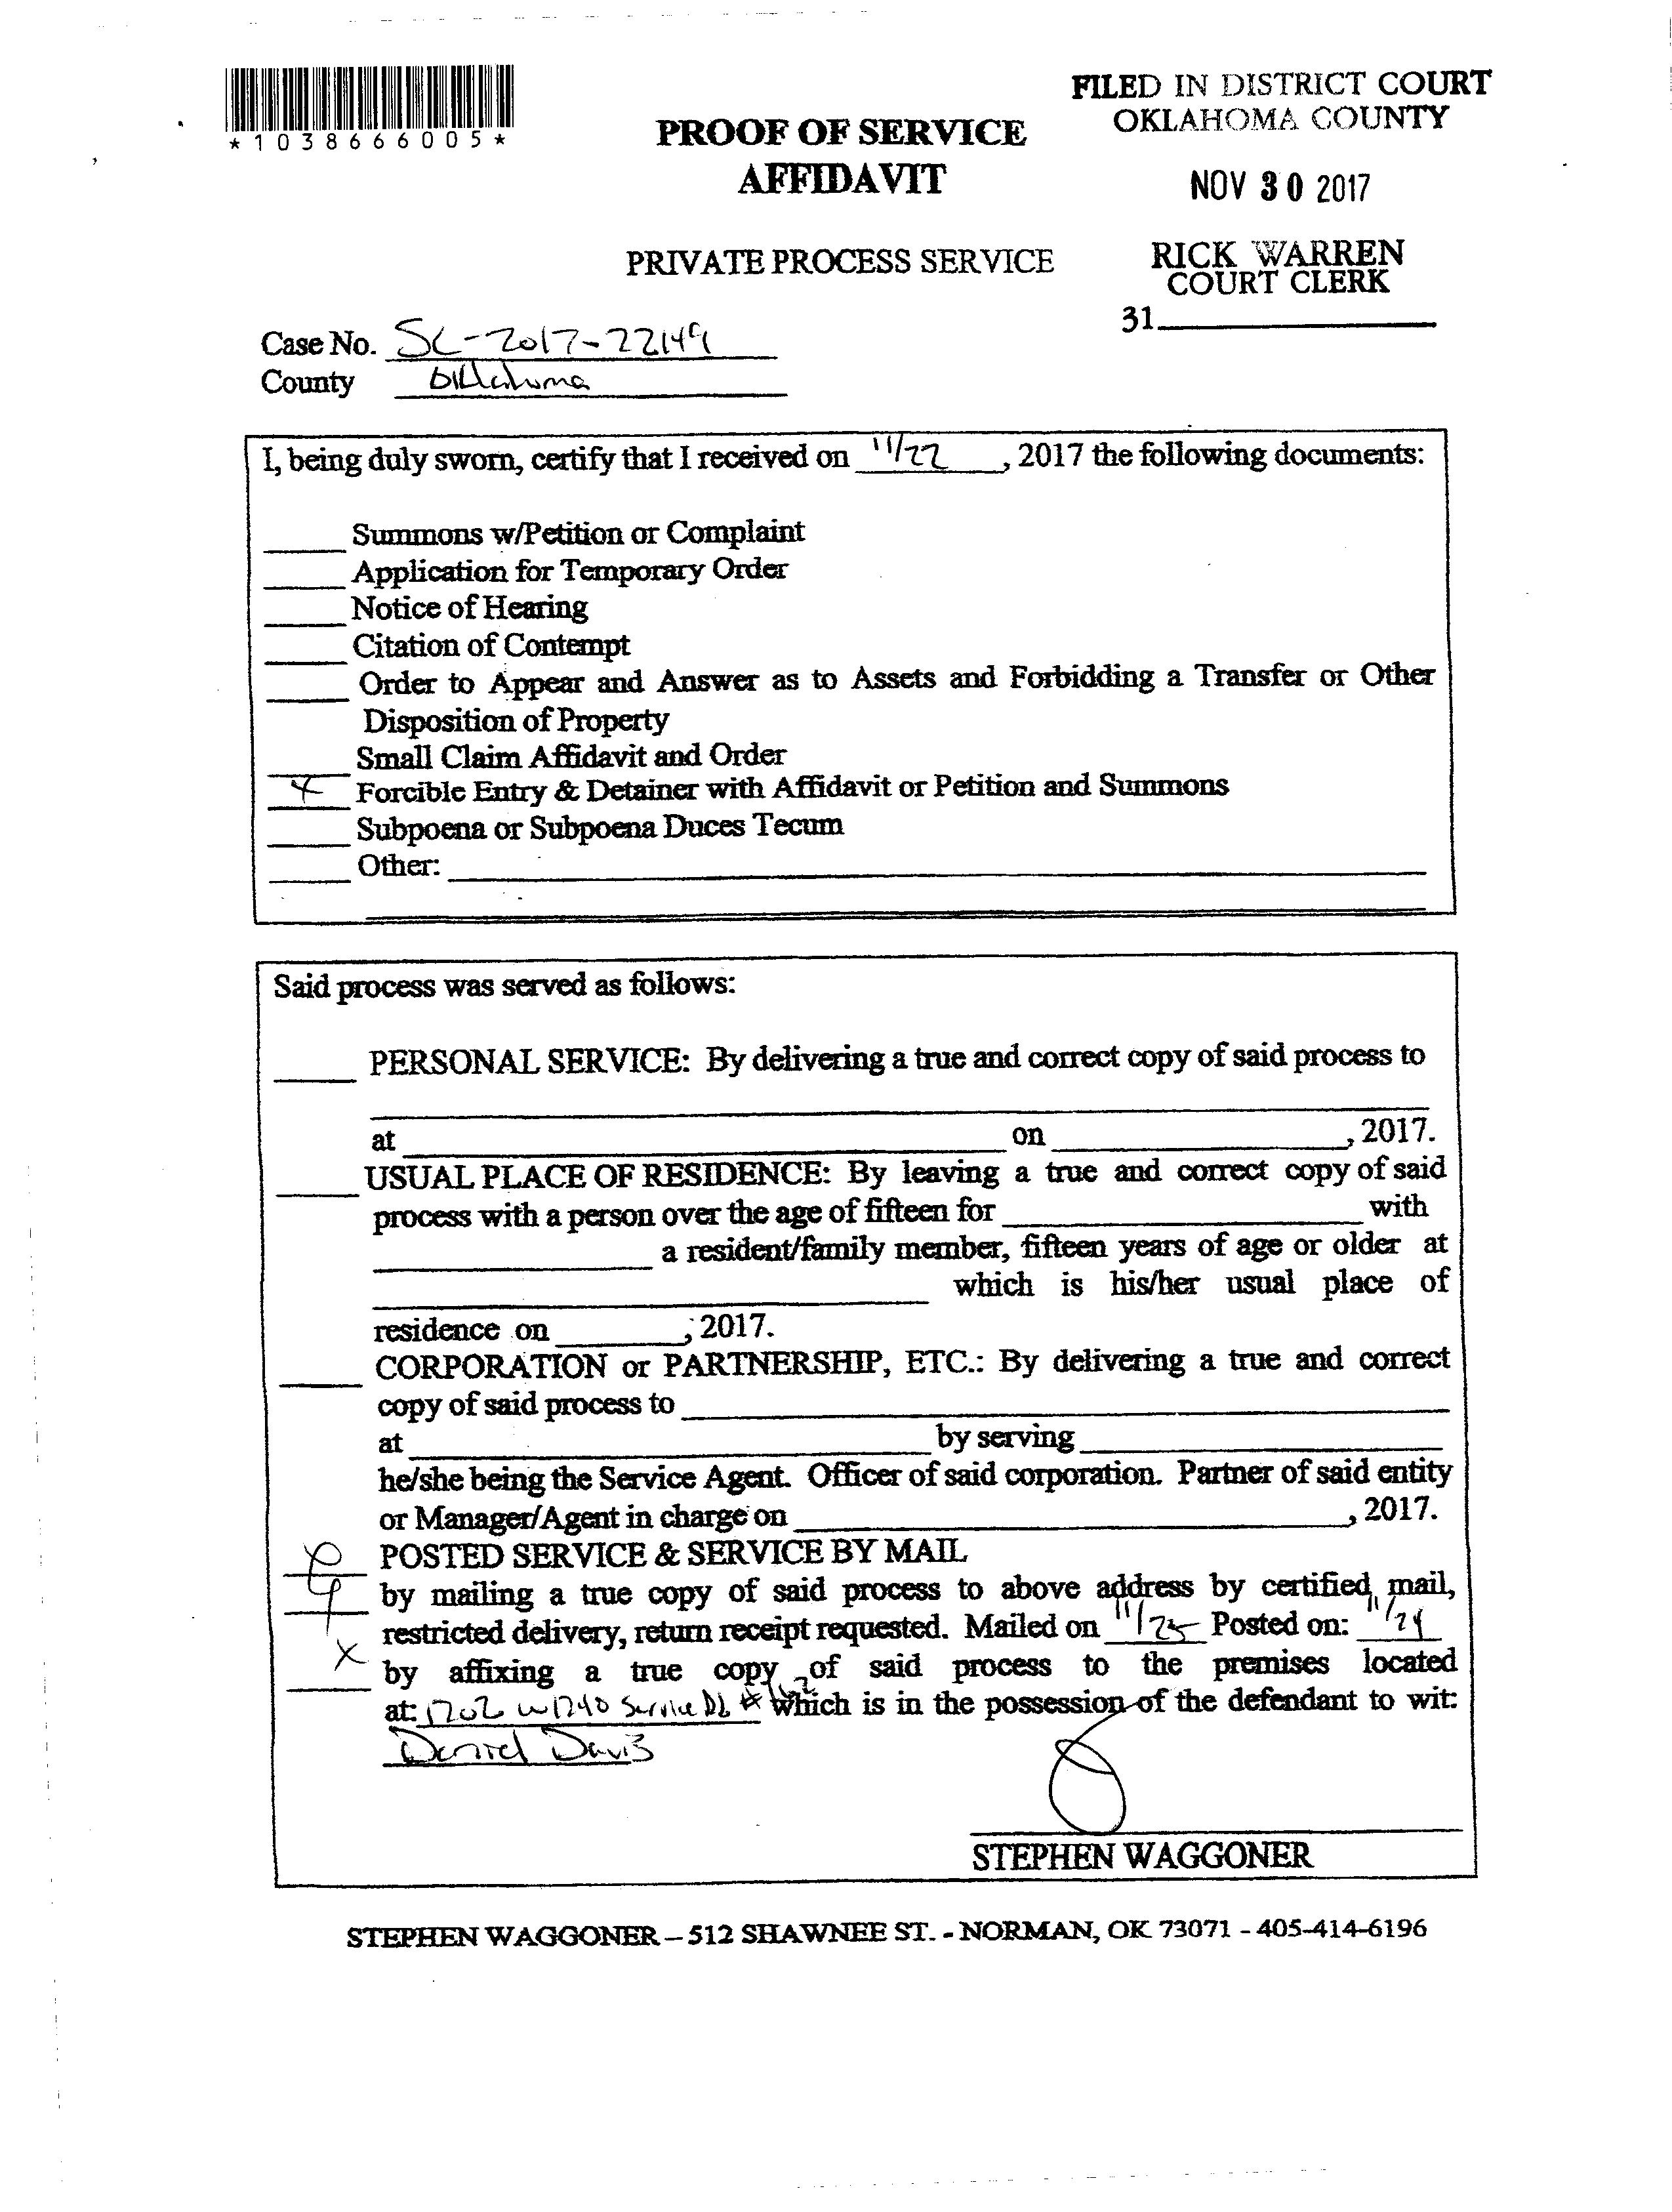 *1038666005*
FILED IN DISTRICT COURT
OKLAHOMA COUNTY
PROOF OF SERVICE
AFFIDAVIT
NOV 30 2017
PRIVATE PROCESS SERVICE
RICK WARREN
COURT CLERK
31
Case No. SC-2017-22149
County Oklahoma
I, being duly sworn, certify that I received on 11/22, 2017 the following documents:
Summons w/Petition or Complaint
Application for Temporary Order
Notice of Hearing
Citation of Contempt
Order to Appear and Answer as to Assets and Forbidding a Transfer or Other
Disposition of Property
Small Claim Affidavit and Order
x Forcible Entry & Detainer with Affidavit or Petition and Summons
Subpoena or Subpoena Duces Tecum
Other:
Said process was served as follows:
PERSONAL SERVICE: By delivering a true and correct copy of said process to
at on , 2017.
USUAL PLACE OF RESIDENCE: By leaving a true and correct copy of said
process with a person over the age of fifteen for with
a resident/family member, fifteen years of age or older at
which is his/her usual place of
residence on , 2017.
CORPORATION or PARTNERSHIP, ETC.: By delivering a true and correct
copy of said process to
at by serving
he/she being the Service Agent. Officer of said corporation. Partner of said entity
or Manager/Agent in charge on , 2017.
x POSTED SERVICE & SERVICE BY MAIL
x by mailing a true copy of said process to above address by certified mail,
restricted delivery, return receipt requested. Mailed on 11/25 Posted on: 11/24
x by affixing a true copy of said process to the premises located
at: 1202 W I240 Service # which is in the possession of the defendant to wit:
Daniel Davis
STEPHEN WAGGONER
STEPHEN WAGGONER – 512 SHAWNEE ST. - NORMAN, OK 73071 - 405-414-6196